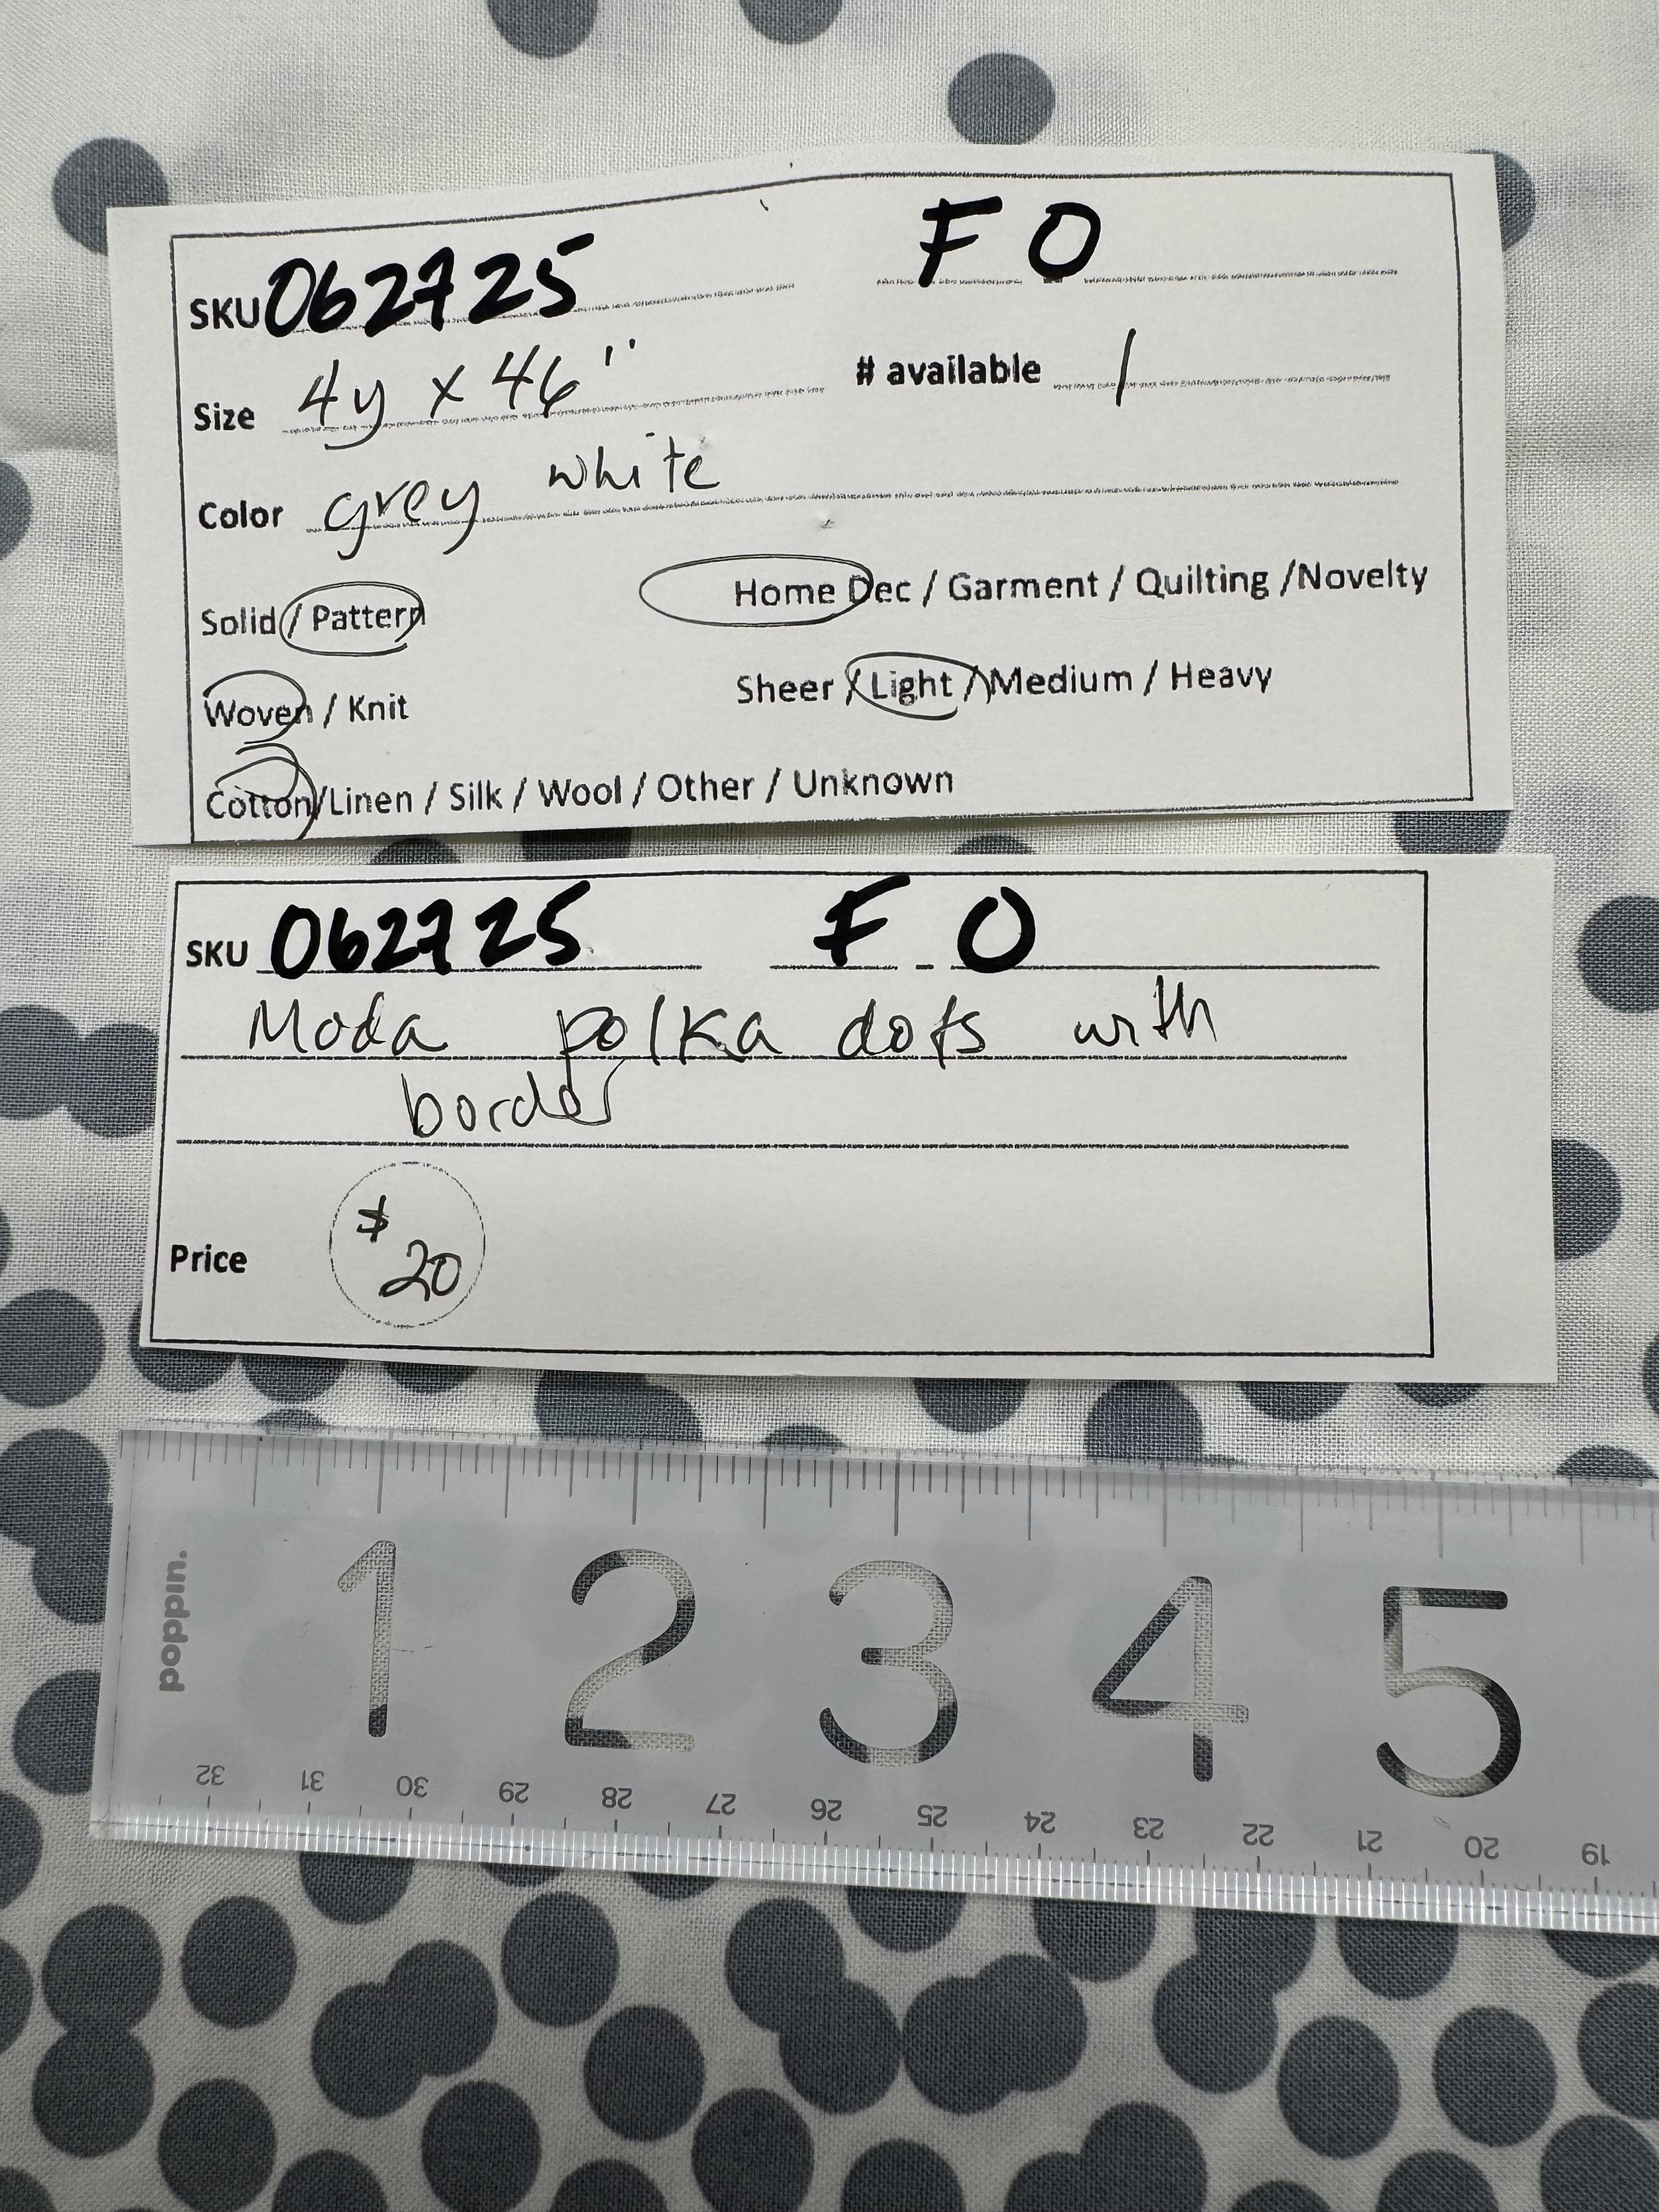 SKU 062725 F O
Size 4y x 46" # available 1
Color grey white
Solid / Pattern Home Dec / Garment / Quilting /Novelty
Woven / Knit Sheer / Light / Medium / Heavy
Cotton/Linen / Silk / Wool / Other / Unknown
SKU 062725 F O
Moda polka dots with
border
Price $20
poppin.
1 2 3 4 5
32 31 30 29 28 27 26 25 24 23 22 21 20 19